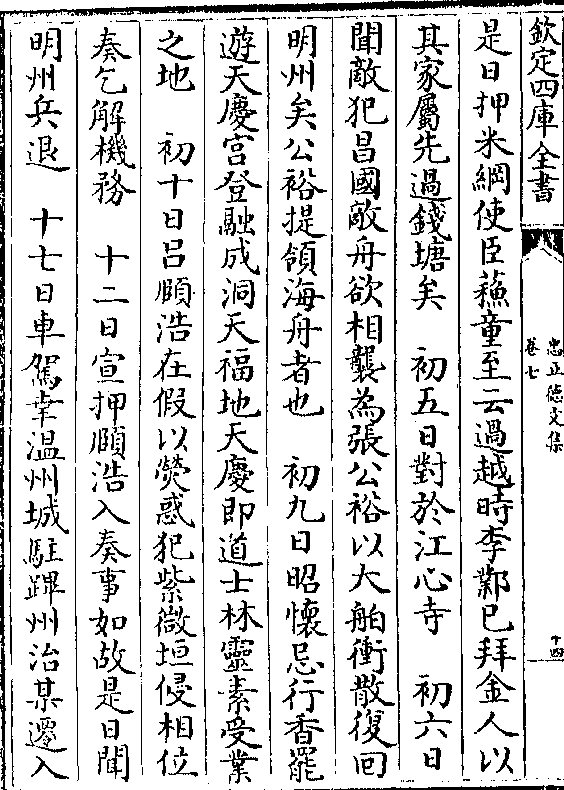 欽定四庫全書
忠正德文集
卷七
十四
是日押米綱使臣蘓童至云過越時李鄴已拜金人以
其家屬先過錢塘矣　初五日對於江心寺　初六日
聞敵犯昌國敵舟欲相襲為張公裕以大舶衝散復回
明州矣公裕提領海舟者也　初九日昭懷忌行香罷
遊天慶宫登融成洞天福地天慶即道士林靈素受業
之地　初十日吕頤浩在假以熒惑犯紫微垣侵相位
奏乞解機務　十二日宣押頤浩入奏事如故是日聞
明州兵退　十七日車駕幸温州城駐蹕州治某遷入